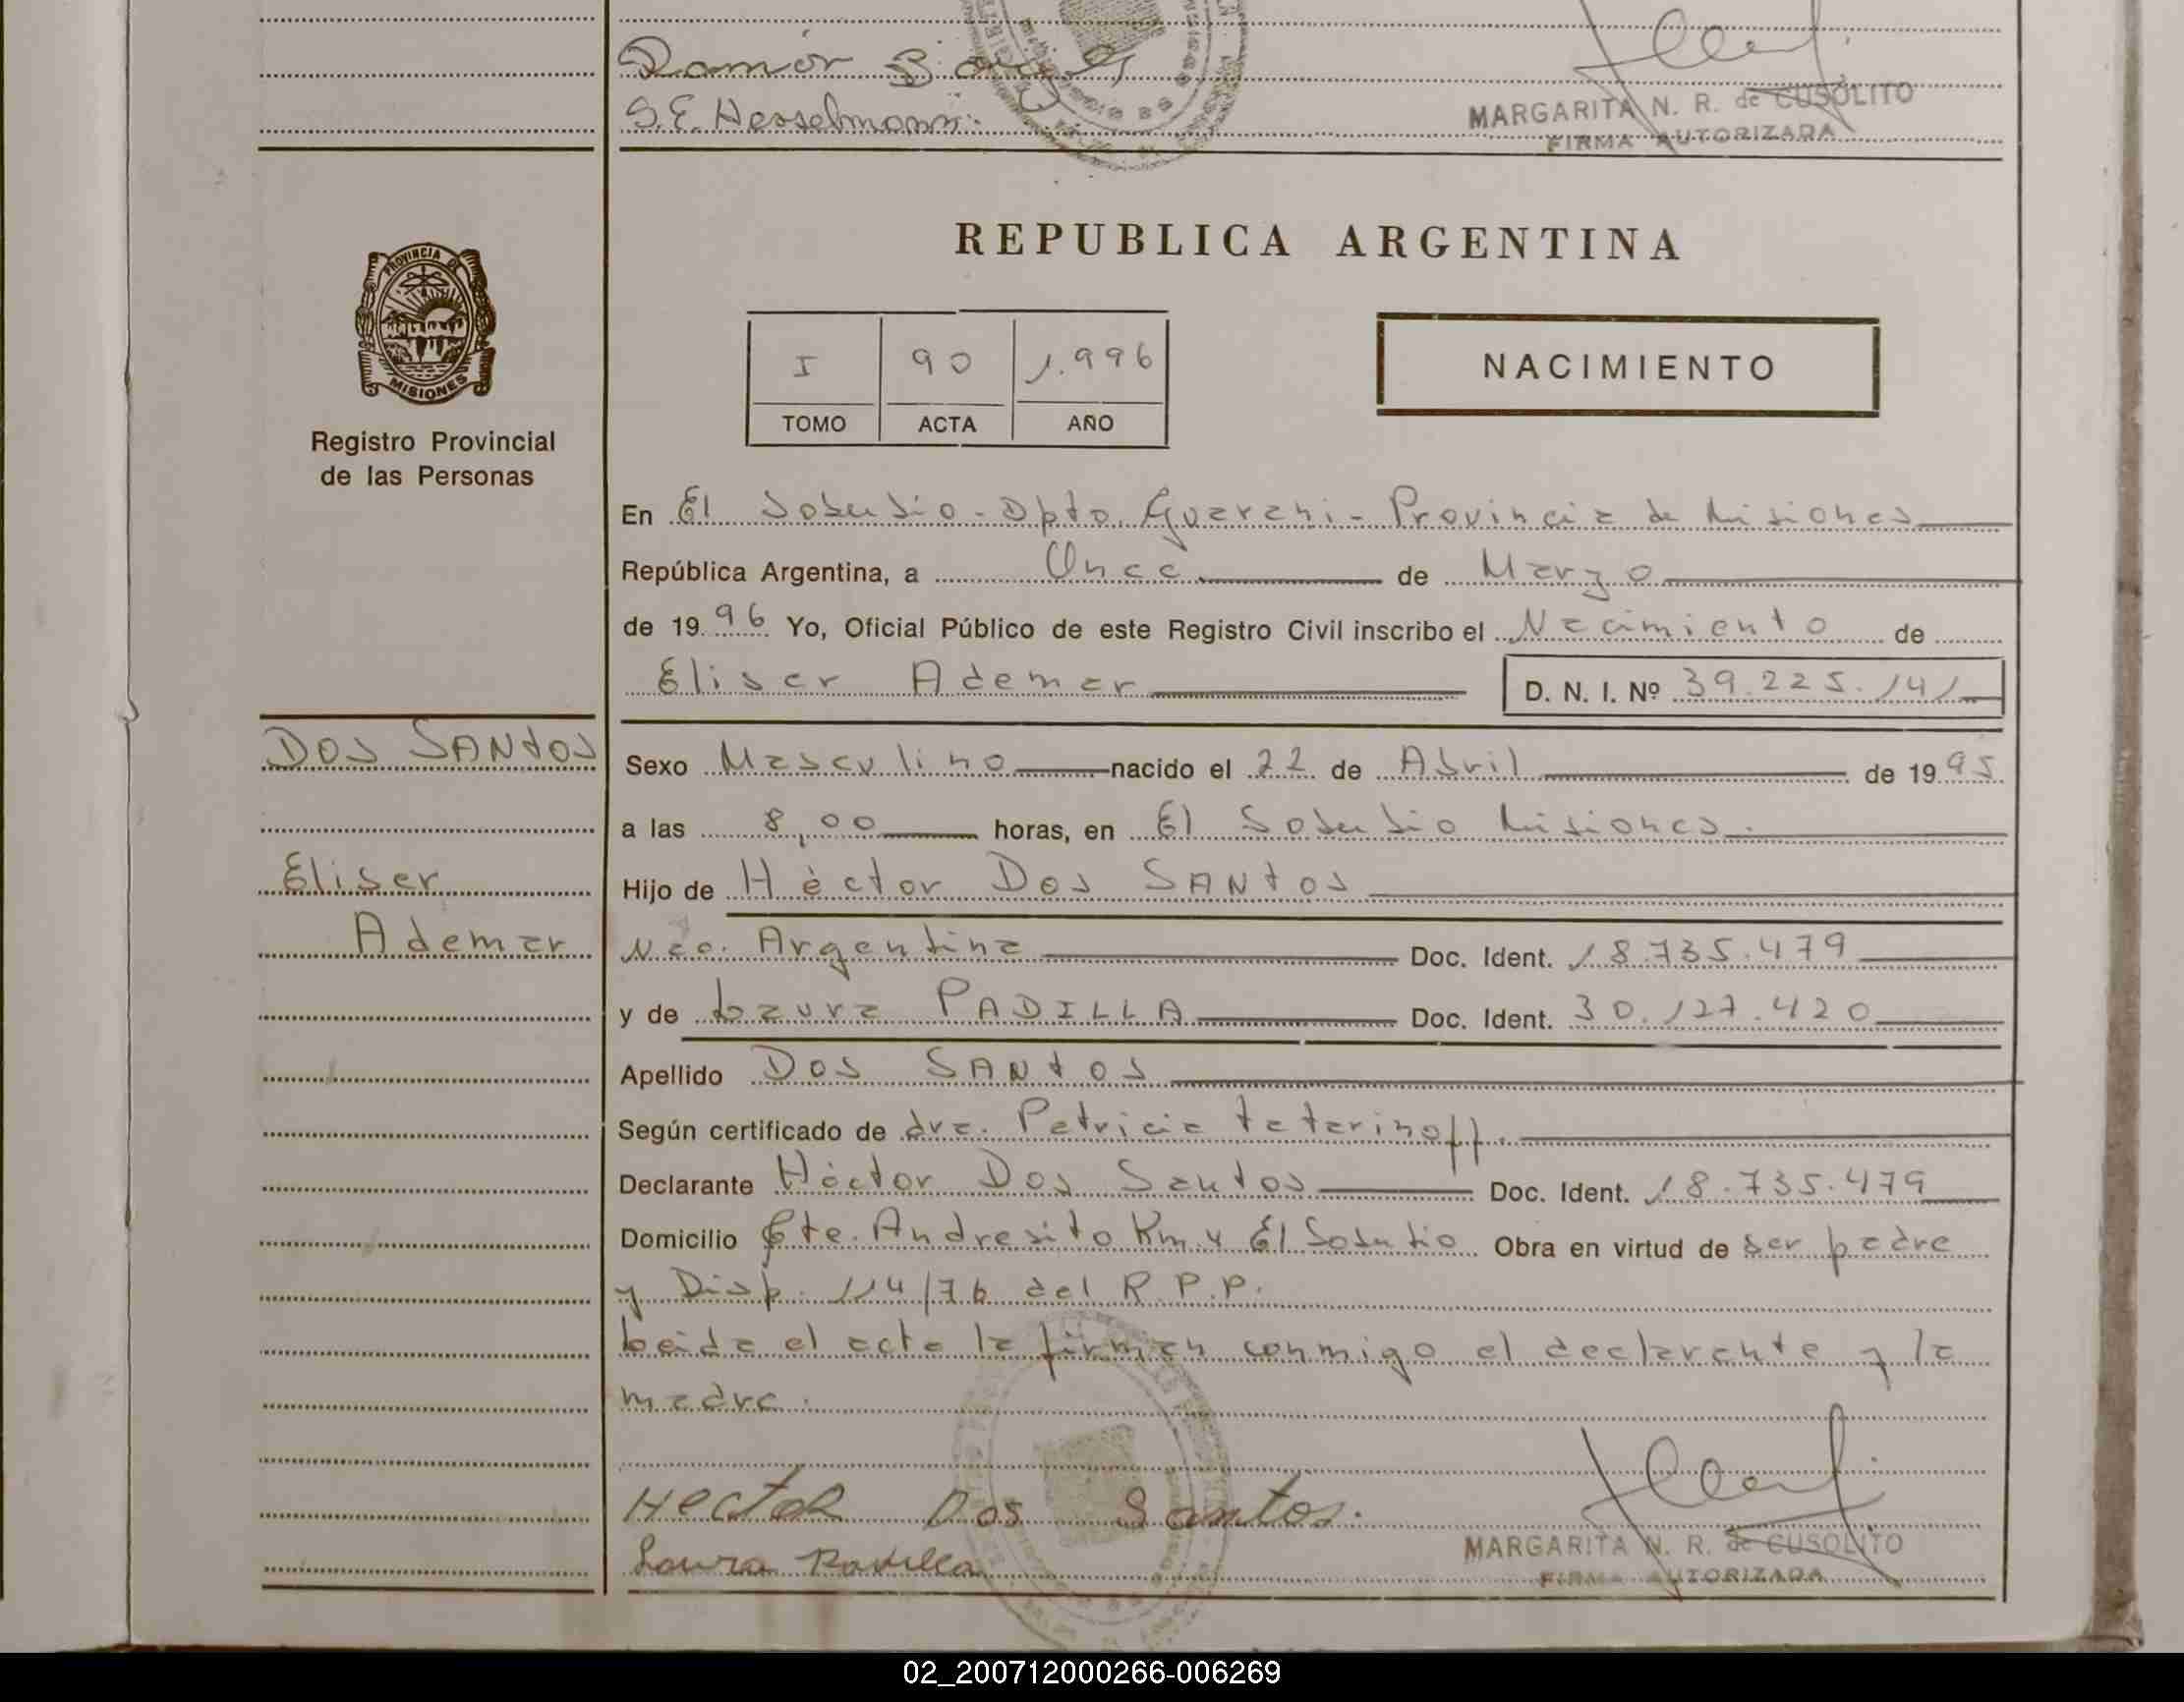 Ramón B
G.E. Hesselmann.
MARGARITA N. R. de CUSOLITO
FIRMA AUTORIZADA
PROVINCIA DE
MISIONES
Registro Provincial
de las Personas
REPUBLICA ARGENTINA
I 90 1.996
TOMO ACTA AÑO
NACIMIENTO
En El Soberbio - Dpto. Guarani - Provincia de Misiones
República Argentina, a Once de Marzo
de 1996 Yo, Oficial Público de este Registro Civil inscribo el Nacimiento de
Eliser Ademar D. N. I. Nº 39.225.141
DOS SANTOS
Eliser
Ademar
Sexo Masculino nacido el 22 de Abril de 1995
a las 8,00 horas, en El Soberbio Misiones.
Hijo de Héctor DOS SANTOS
Nac. Argentina Doc. Ident. 18.735.479
y de Laura PADILLA Doc. Ident. 30.127.420
Apellido DOS SANTOS
Según certificado de dra. Patricia Tatarinoff.
Declarante Héctor Dos Santos Doc. Ident. 18.735.479
Domicilio Cte. Andresito Km 4 El Soberbio Obra en virtud de ser padre
y Disp. 114/76 del R.P.P.
Leida el acta la firman conmigo el declarante y la
madre.
Hector Dos Santos.
Laura Padilla
MARGARITA N. R. de CUSOLITO
FIRMA AUTORIZADA
02_200712000266-006269